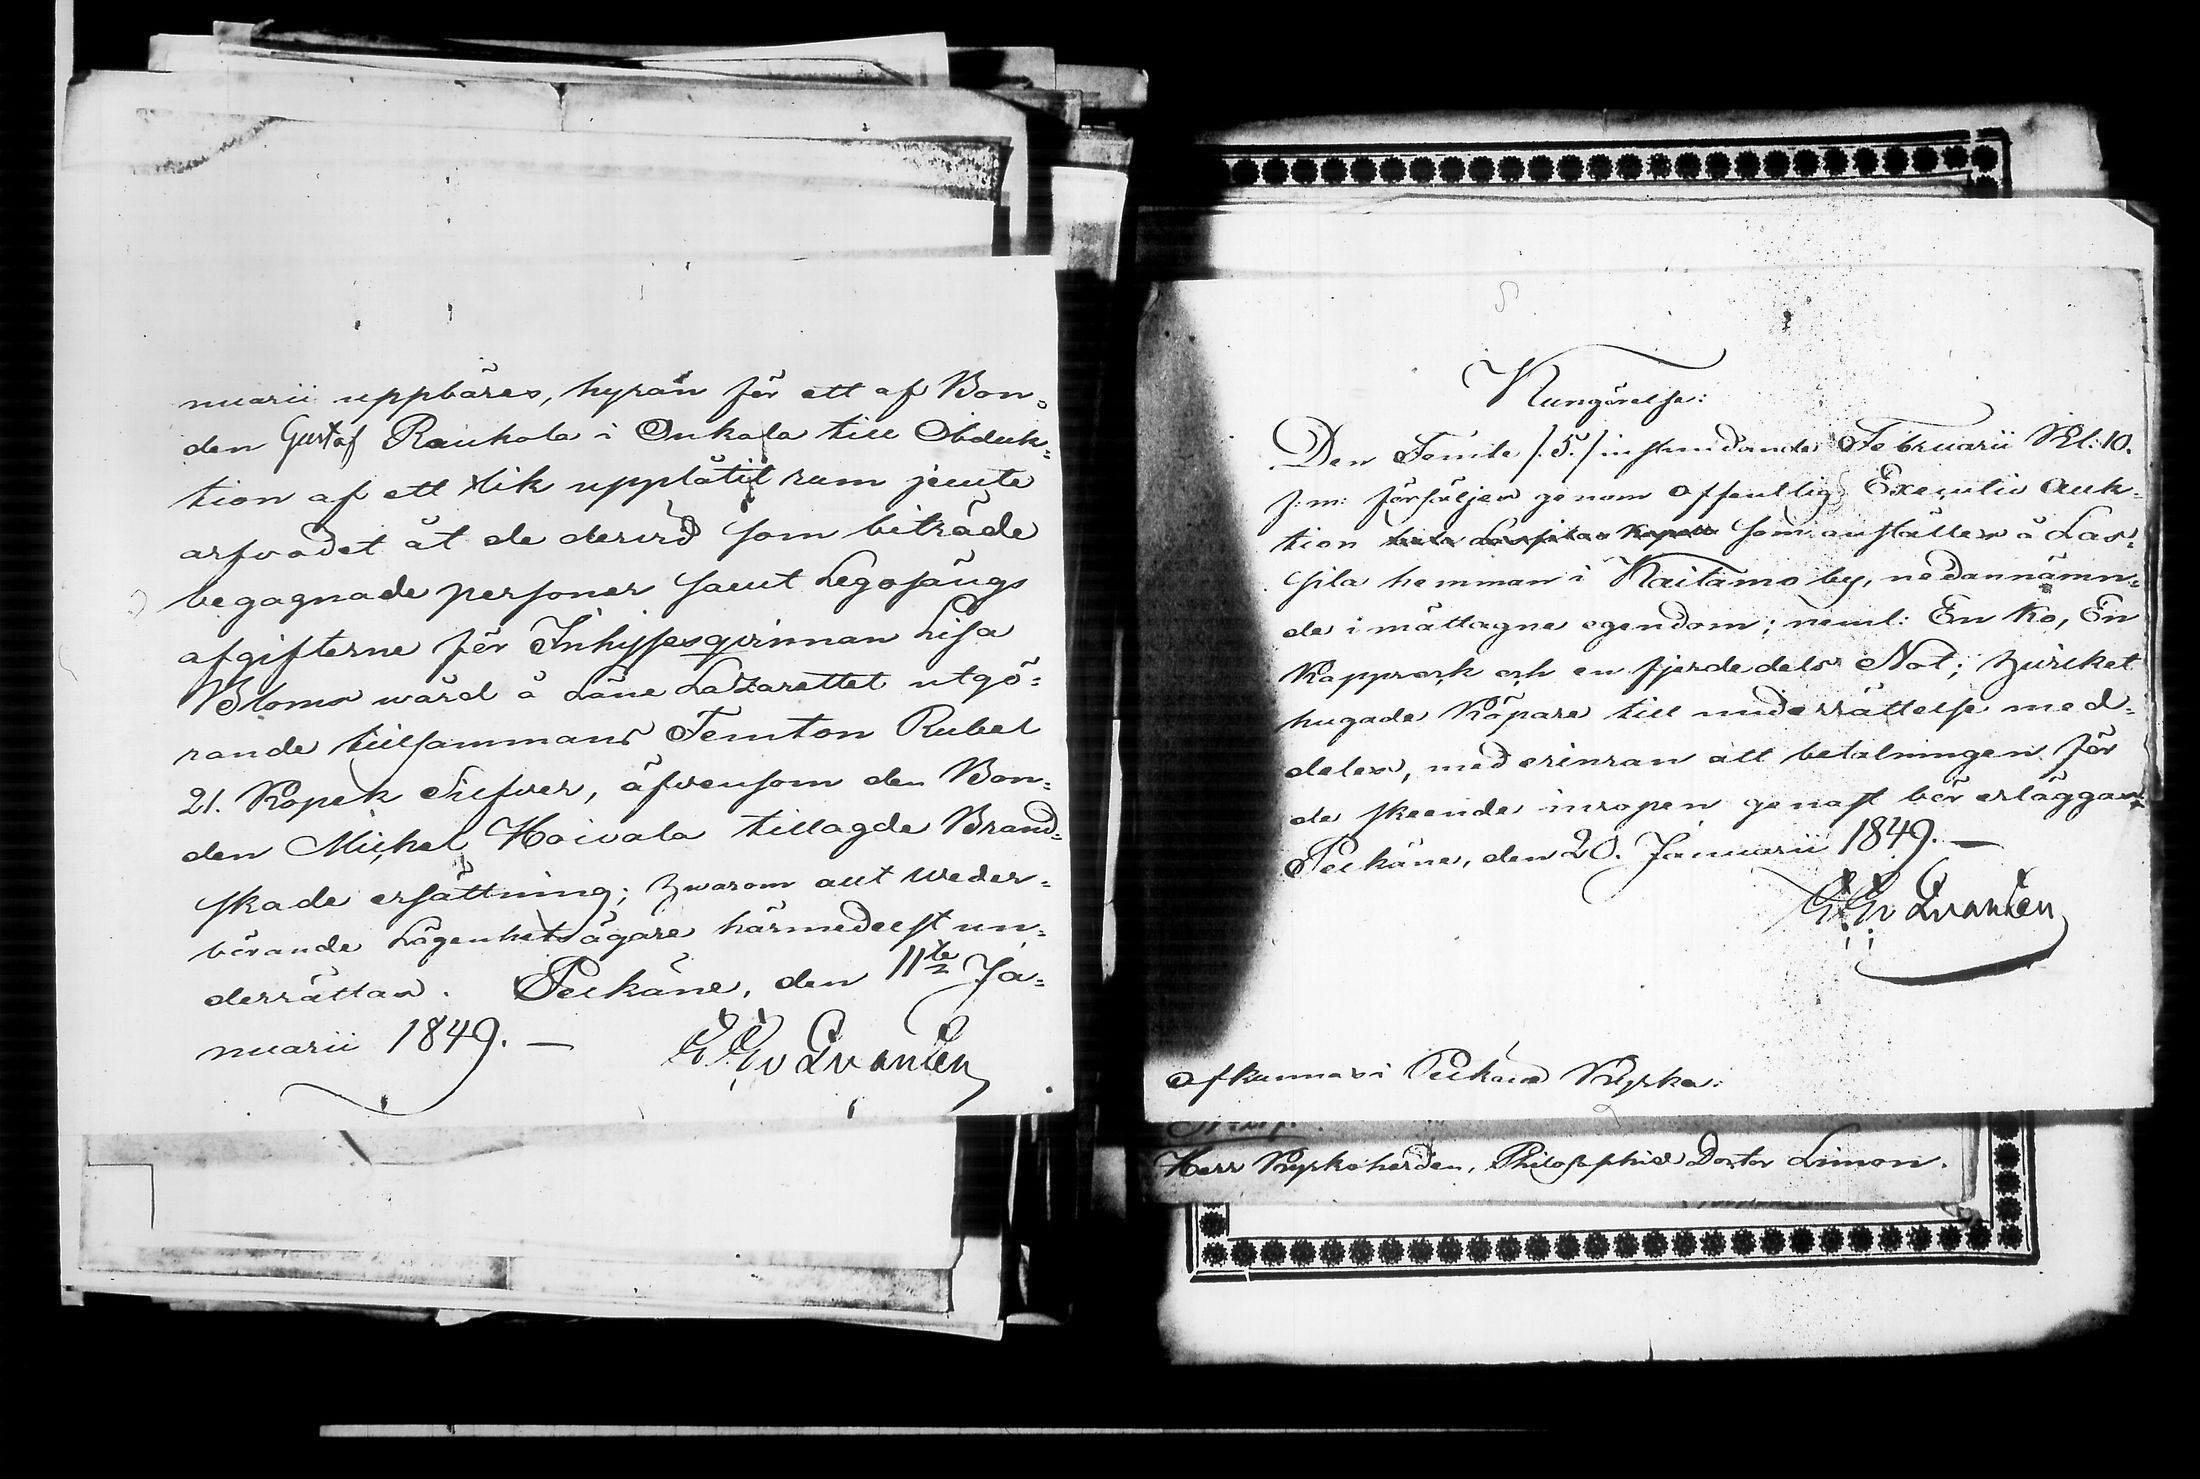 nuarii uppbäres, hyran för ett af Bon=
den Gustaf Raukola i Onkala till Obduk=
tion af ett lik upplåtit rum jemte
arfvodet åt de dervid som biträde
begagnade personer samt Legosängs
afgifterne för Inhysesqvinnan Lisa
Bloms wård å Läne Lazarettet utgö=
rande tillsammans Femton Rubel
21. Kopek Silfver, äfvensom den Bon=
den Michel Hoivala tillagde Brand=
skade ersättning; hwarom allt weder=
börande Lägenhets ägare härmedelst un=
derrättas. Pelkäne, den 11te Ja=
nuarii 1849. —
G Gv Qvanten
Kungörelse:
Den Femte /:5./ instundande Februarii Kl: 10.
f: m: försäljes genom offentlig Executiv Auk=
tion som anställes å Las=
sila hemman i Kaitamo by, nedannämn=
de i mättagne egendom; neml: En Ko, En
Kapprock och en fjerdedels Not; hwilket
hugade Köpare till underrättelse med=
delas, med erinran att betalningen för
de skeende inropen genast bör erläggas.
Pelkäne, den 20. Januarii 1849. —
G Gv Qvanten
Afkunnas i Pelkäne Kyrka:
Herr Kyrkoherden, Philosophiæ Doctor Limon.